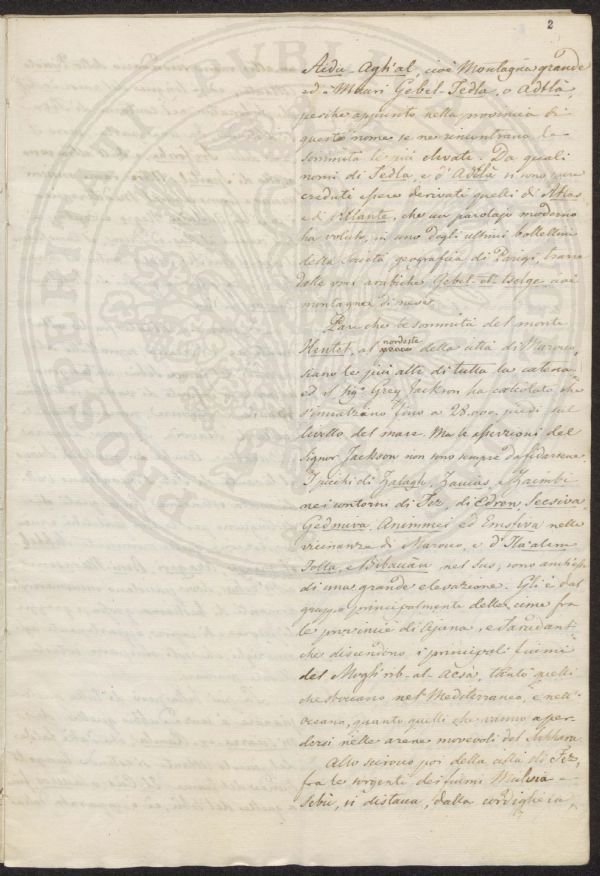 2
Aedu-Agh'al, cioè Montagna grande
ed i Mauri Gebel-Tedla, o Adtla,
perchè appunto nella provincia di
questo nome se ne rincontrano le
sommità le più elevate. Da quali
nomi di Tedla, e d'Adtla vi sono pure
creduti essere derivati quelli di Atlas
e di Atlante, che un parolajo moderno
ha voluto, in uno degli ultimi bollettini
della società geografica di Parigi, trarre
dalle voci arabiche Gebel-et-tselge cioè
montagna di neve.
Pare che le sommità del monte
Hentet, al nordeste della città di Marocco,
siano le più alte di tutta la catena
ed il Sigr. Grey Jackson ha calcolato che
s'innalzano fino a 28.000. piedi sul
livello del mare. Ma le asserzioni del
Signor Jackson non sono sempre da fidarsene.
I picchi di Zalagh, Zauias, e Zaimbi
nei contorni di Fez, di Edron, Secsiva
Gedmiva, Animmei ed Emsfiva nelle
vicinanze di Marocco, e d'Ila'alem
Polla, e Bibauan nel Sus, sono anch'essi
di una grande elevazione. Gli è dal
gruppo principalmente delle cime fra
le provincie di e Tarudant
che discendono i principali fiumi
del Moghrib-al-Acsà, tanto quelli
che sboccano nel Mediterraneo, e nell'
Oceano, quanto quelli che vanno a per-
dersi nelle arene movevoli del Sahhara.
Allo scirocco poi della città di Fez,
fra le sorgenti dei fiumi Muluia e
Sebù, si distacca, dalla cordigliera,
PROSPERITATI PUBLICAE